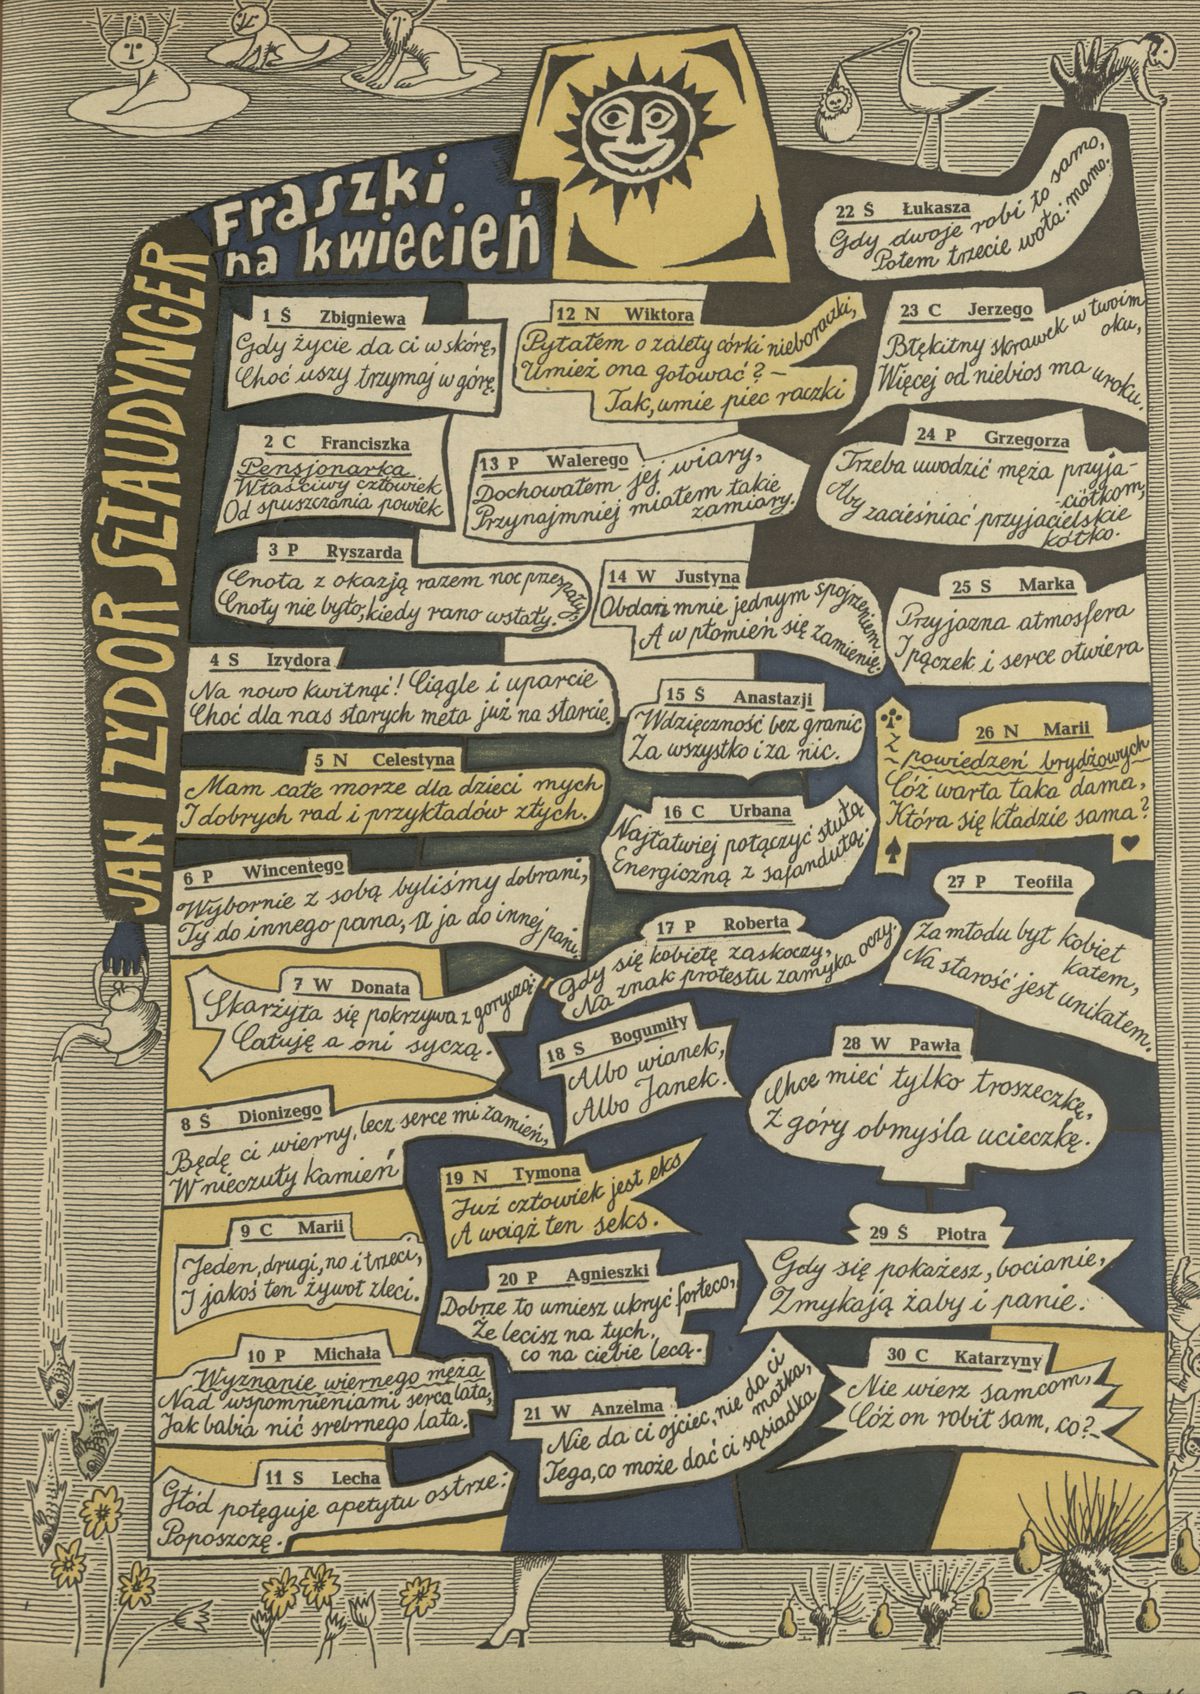 Fraszki
na kwiecień
JAN IZYDOR SZTAUDYNGER
1 Ś Zbigniewa
Gdy życie da ci w skórę,
Choć uszy trzymaj w górę.
2 C Franciszka
Pensjonarka
Właściwy człowiek
Od spuszczania powiek
3 P Ryszarda
Cnota z okazją razem noc przespały,
Cnoty nie było, kiedy rano wstały.
4 S Izydora
Na nowo kwitnąć! Ciągle i uparcie
Choć dla nas starych meta już na starcie.
5 N Celestyna
Mam całe morze dla dzieci mych
I dobrych rad i przykładów złych.
6 P Wincentego
Wybornie z sobą byliśmy dobrani,
Ty do innego pana, a ja do innej pani.
7 W Donata
Skarżyła się pokrzywa z goryczą:
Całuję a oni syczą.
8 Ś Dionizego
Będę ci wierny, lecz serce mi zamień,
W nieczuły kamień
9 C Marii
Jeden, drugi, no i trzeci,
I jakoś ten żywot zleci.
10 P Michała
Wyznanie wiernego męża
Nad wspomnieniami serca lata,
Jak babia nić srebrnego lata.
11 S Lecha
Głód potęguje apetytu ostrze:
Poposzczę.
12 N Wiktora
Pytałem o zalety córki nieboraczki,
Umież ona gotować? –
Tak, umie piec raczki
13 P Walerego
Dochowałem jej wiary,
Przynajmniej miałem takie
zamiary.
14 W Justyna
Obdarz mnie jednym spojrzeniem,
A w płomień się zamienię.
15 Ś Anastazji
Wdzięczność bez granic
Za wszystko i za nic.
16 C Urbana
Najłatwiej połączyć stułą
Energiczną z safandułą.
17 P Roberta
Gdy się kobietę zaskoczy,
Na znak protestu zamyka oczy.
18 S Bogumiły
Albo wianek,
Albo Janek.
19 N Tymona
Już człowiek jest eks
A wciąż ten seks.
20 P Agnieszki
Dobrze to umiesz ukryć forteco,
Że lecisz na tych,
co na ciebie lecą.
21 W Anzelma
Nie da ci ojciec, nie da ci
matka,
Tego, co może dać ci sąsiadka
22 Ś Łukasza
Gdy dwoje robi to samo,
Potem trzecie woła: mamo.
23 C Jerzego
Błękitny skrawek w twoim
oku,
Więcej od niebios ma uroku.
24 P Grzegorza
Trzeba uwodzić męża przyja-
ciółkom,
Aby zacieśniać przyjacielskie
kółko.
25 S Marka
Przyjazna atmosfera
I pączek i serce otwiera
26 N Marii
Z
powiedzeń brydżowych
Cóż warta taka dama,
Która się kładzie sama?
27 P Teofila
Za młodu był kobiet
katem,
Na starość jest unikatem.
28 W Pawła
Chce mieć tylko troszeczkę,
Z góry obmyśla ucieczkę.
29 Ś Piotra
Gdy się pokażesz, bocianie,
Zmykają żaby i panie.
30 C Katarzyny
Nie wierz samcom,
Cóż on robił sam, co? –